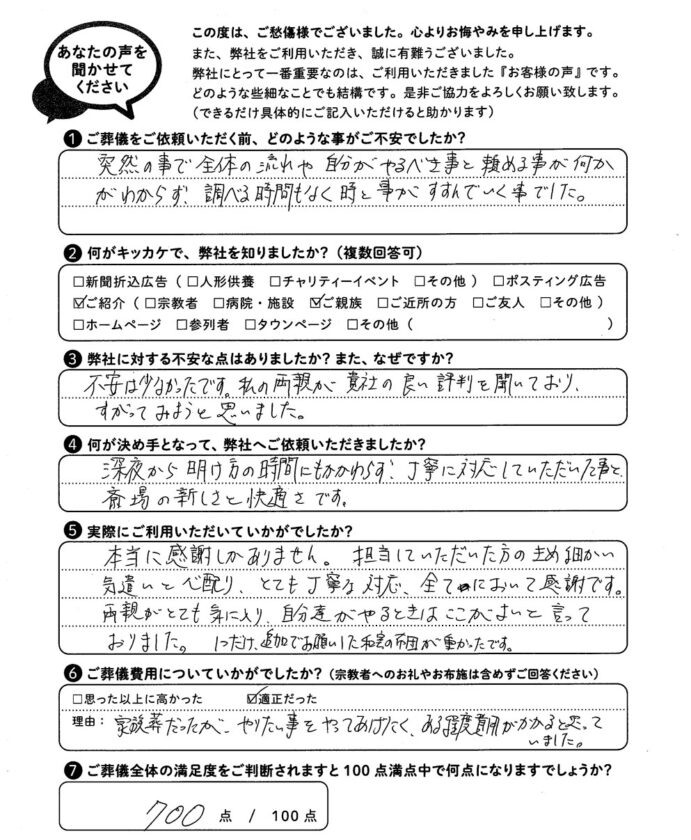 あなたの声を
聞かせて
ください
この度は、ご愁傷様でございました。心よりお悔やみを申し上げます。
また、弊社をご利用いただき、誠に有難うございました。
弊社にとって一番重要なのは、ご利用いただきました『お客様の声』です。
どのような些細なことでも結構です。是非ご協力をよろしくお願い致します。
（できるだけ具体的にご記入いただけると助かります）
❶ ご葬儀をご依頼いただく前、どのような事がご不安でしたか？
突然の事で全体の流れや自分がやるべき事と頼める事が何か
がわからず、調べる時間もなく時と事がすすんでいく事でした。
❷ 何がキッカケで、弊社を知りましたか？（複数回答可）
□新聞折込広告（□人形供養 □チャリティーイベント □その他）□ポスティング広告
☑ご紹介（□宗教者 □病院・施設 ☑ご親族 □ご近所の方 □ご友人 □その他）
□ホームページ □参列者 □タウンページ □その他（ ）
❸ 弊社に対する不安な点はありましたか？また、なぜですか？
不安は少なかったです。私の両親が貴社の良い評判を聞いており、
すがってみようと思いました。
❹ 何が決め手となって、弊社へご依頼いただきましたか？
深夜から明け方の時間にもかかわらず、丁寧に対応していただいた事と
斎場の新しさと快適さです。
❺ 実際にご利用いただいていかがでしたか？
本当に感謝しかありません。担当していただいた方のきめ細かい
気遣いと心配り、とても丁寧な対応、全てにおいて感謝です。
両親がとても気に入り、自分達がやるときはここがよいと言って
おりました。1つだけ、追加でお願いした和室の布団が重かったです。
❻ ご葬儀費用についていかがでしたか？（宗教者へのお礼やお布施は含めずご回答ください）
□思った以上に高かった ☑適正だった
理由：家族葬だったが、やりたい事をやってあげたく、ある程度費用がかかると思って
いました。
❼ ご葬儀全体の満足度をご判断されますと100点満点中で何点になりますでしょうか？
700 点 / 100点